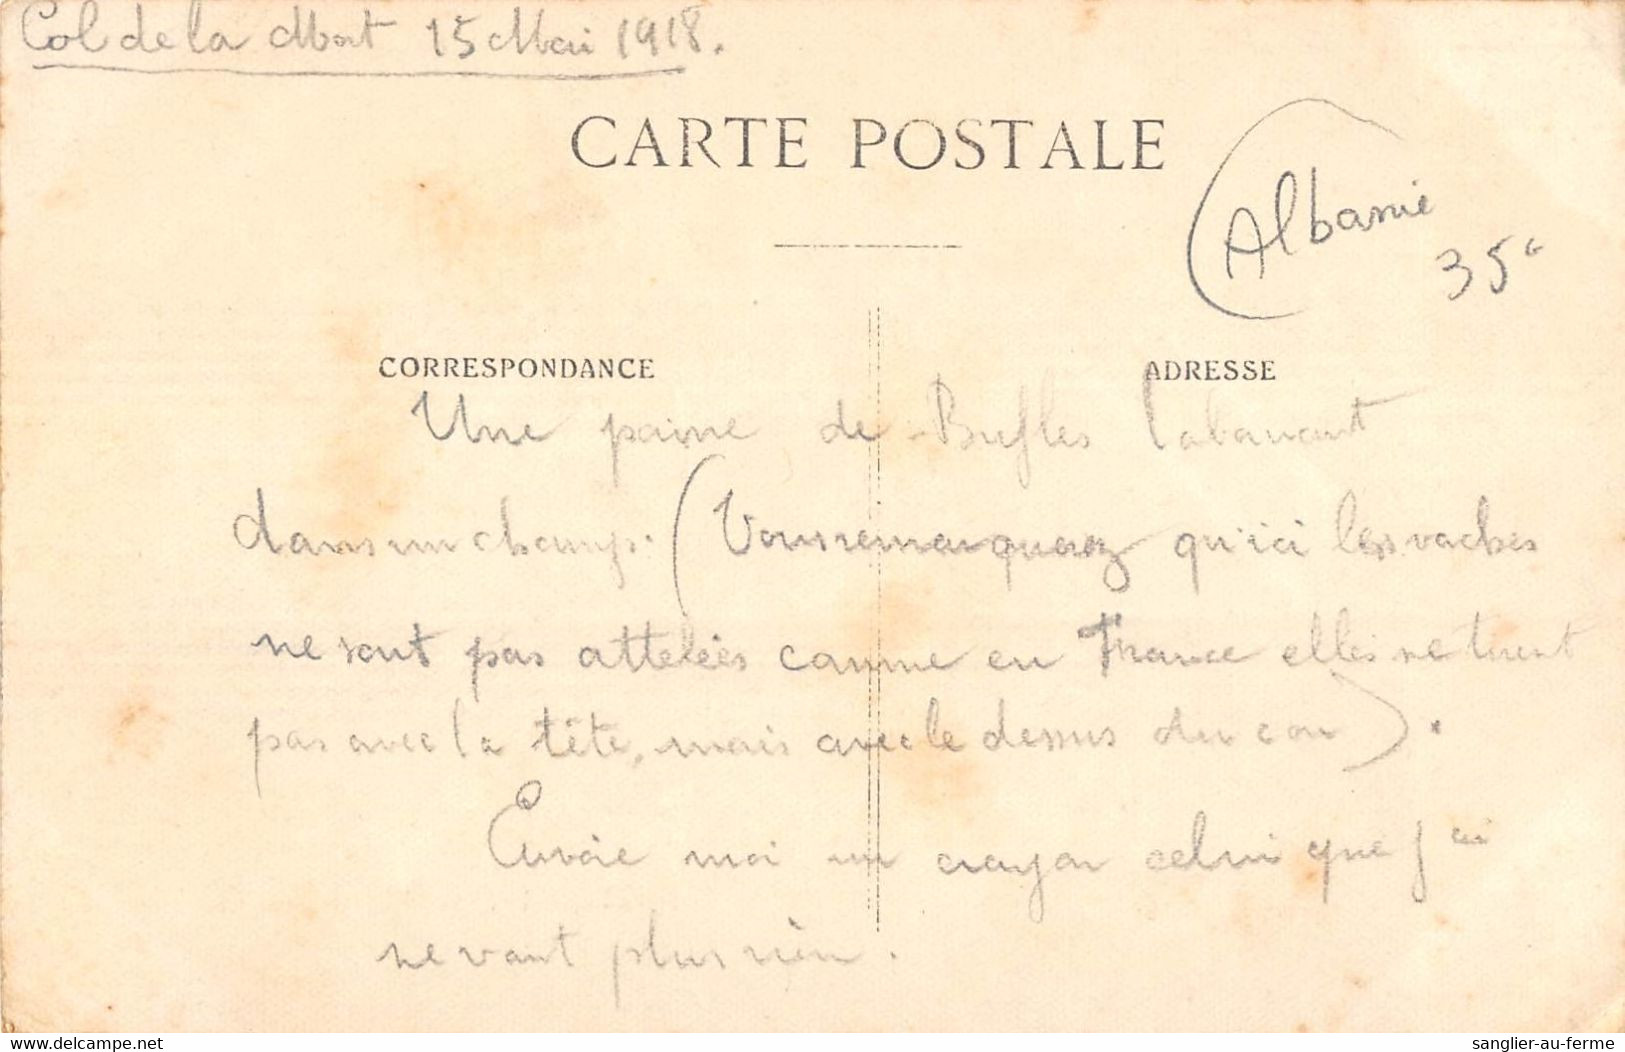 Col de la Mort 15 Mai 1918.
CARTE POSTALE
Albanie
35€
CORRESPONDANCE
ADRESSE
Une paire de Bufles labourant
dans un champs. (Vous remarquerez qu'ici les vaches
ne sont pas attelées comme en France elles ne tirent
pas avec la tête, mais avec le dessus du cou).
Envoie moi un crayon celui que j'ai
ne vaut plus rien.
delcampe.net
sanglier-au-ferme